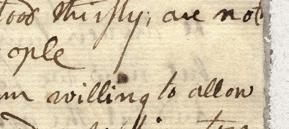 ood thirsty; are not
ople
m willing to allow